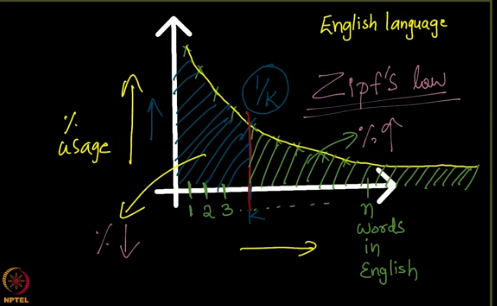 English language
1/K
Zipf's law
% ↑
%
usage
1 2 3 ......... n
K
words
in
English
% ↓
NPTEL